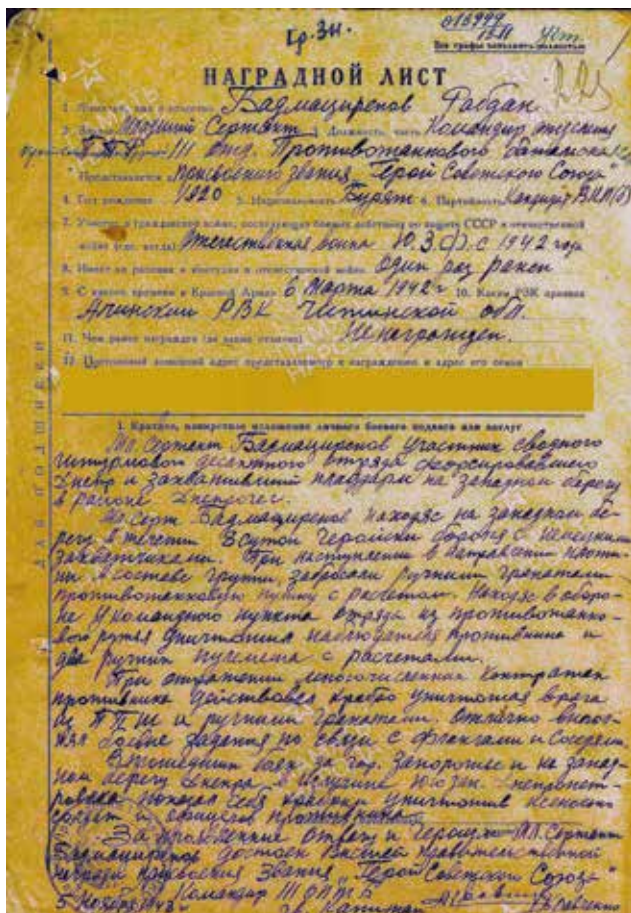 Гр. Зн.
Все графы заполнять полностью
НАГРАДНОЙ ЛИСТ
1. Фамилия, имя и отчество Бадмацыренов Рабдан
2. Звание Младший Сержант 3. Должность, часть Командир отделения
ПТР III отд. Противотанкового батальона
Представляется к присвоению звания „Герой Советского Союза"
4. Год рождения 1920 5. Национальность Бурят 6. Партийность Кандидат ВКП(б)
7. Участие в гражданской войне, последующих боевых действиях по защите СССР и отечественной
войне (где, когда) Отечественная война Ю.З.Ф. с 1942 года
8. Имеет ли ранения и контузии в отечественной войне один раз ранен
9. С какого времени в Красной Армии 6 Марта 1942 г 10. Каким РВК призван
Агинским РВК Читинской обл.
11. Чем ранее награжден (за какие отличия) Не награжден.
12. Постоянный домашний адрес представляемого к награждению и адрес его семьи
ДЛЯ ПОДШИВКИ
I. Краткое, конкретное изложение личного боевого подвига или заслуг
Мл. Сержант Бадмацыренов участник сводного
штурмового десантного отряда форсировавшего
Днепр и захвативший плацдарм на западном берегу
в районе Днепрогэс.
Мл. Серж. Бадмацыренов находяс на западном бе-
регу в течении 8 суток Геройски боролся с немецкими
захватчиками. При наступлении в направлении плоти-
ны в составе группы, забросали ручными гранатами
противотанковую пушку с расчетом. Находяс в оборо-
не у командного пункта отряда из противотанко-
вого ружья уничтожил наблюдателя противника и
два ручных пулемета с расчетами.
При отражении многочисленных контратак
противника действовал храбро уничтожая врага
из ППШ и ручными гранатами. Отлично выпол-
нял боевые задания по связи с флангами и соседями.
В прошедших боях за гор. Запорожье и на запад-
ном берегу Днепра в излучине юго зап. Днепропет-
ровска показал себя храбрым уничтожив несколько
солдат и офицеров противника.
За проявленные отвагу и героизм Мл. Сержант
Бадмацыренов достоен Высшей правительственной
награды присвоения Звания „Герой Советского Союза"
Командир III ОПТБ
5 Ноября 1943 г. Капитан